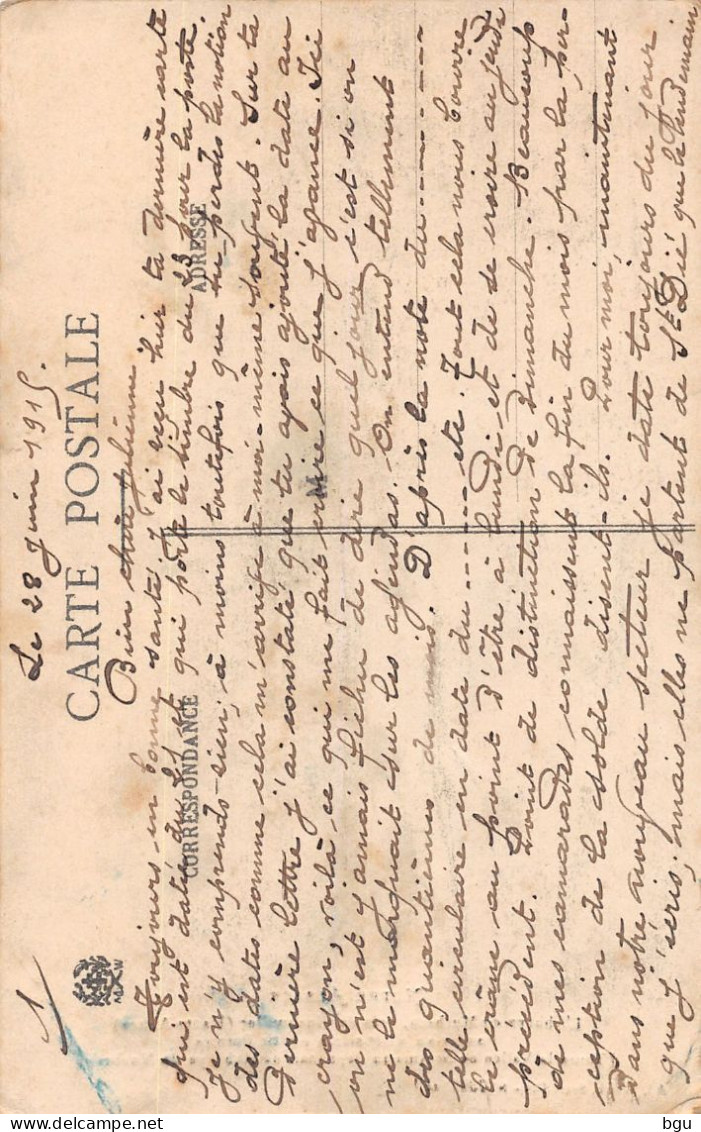 1
Le 28 Juin 1915.
CARTE POSTALE
CORRESPONDANCE
ADRESSE
M
Bien chère Julienne
Toujours en bonne santé, j'ai reçu hier ta dernière carte
qui est datée du et qui porte le timbre du 23 pour la poste.
Je n'y comprends rien, à moins toutefois que tu perdes la notion
des dates comme cela m'arrive à moi-même souvent. Sur ta
dernière lettre j'ai constaté que tu avais ajouté la date au
crayon, voilà ce qui me fait écrire ce que j'avance. Ici
on n'est jamais fichu de dire quel jour c'est si on
ne le marquait sur les agendas. On entend tellement
des quantièmes de mois. D'après la note du -------
telle circulaire en date du ----- etc. Tout cela nous bourre
le crâne au point d'être à lundi et de se croire au jeudi
précédent. Point de distinction de Dimanche. Beaucoup
de mes camarades connaissent la fin du mois par la per-
ception de la solde disent-ils. Pour moi, maintenant
dans notre nouveau secteur je date toujours du jour
que j'écris, mais elles ne partent de St Dié que le lendemain
bgu